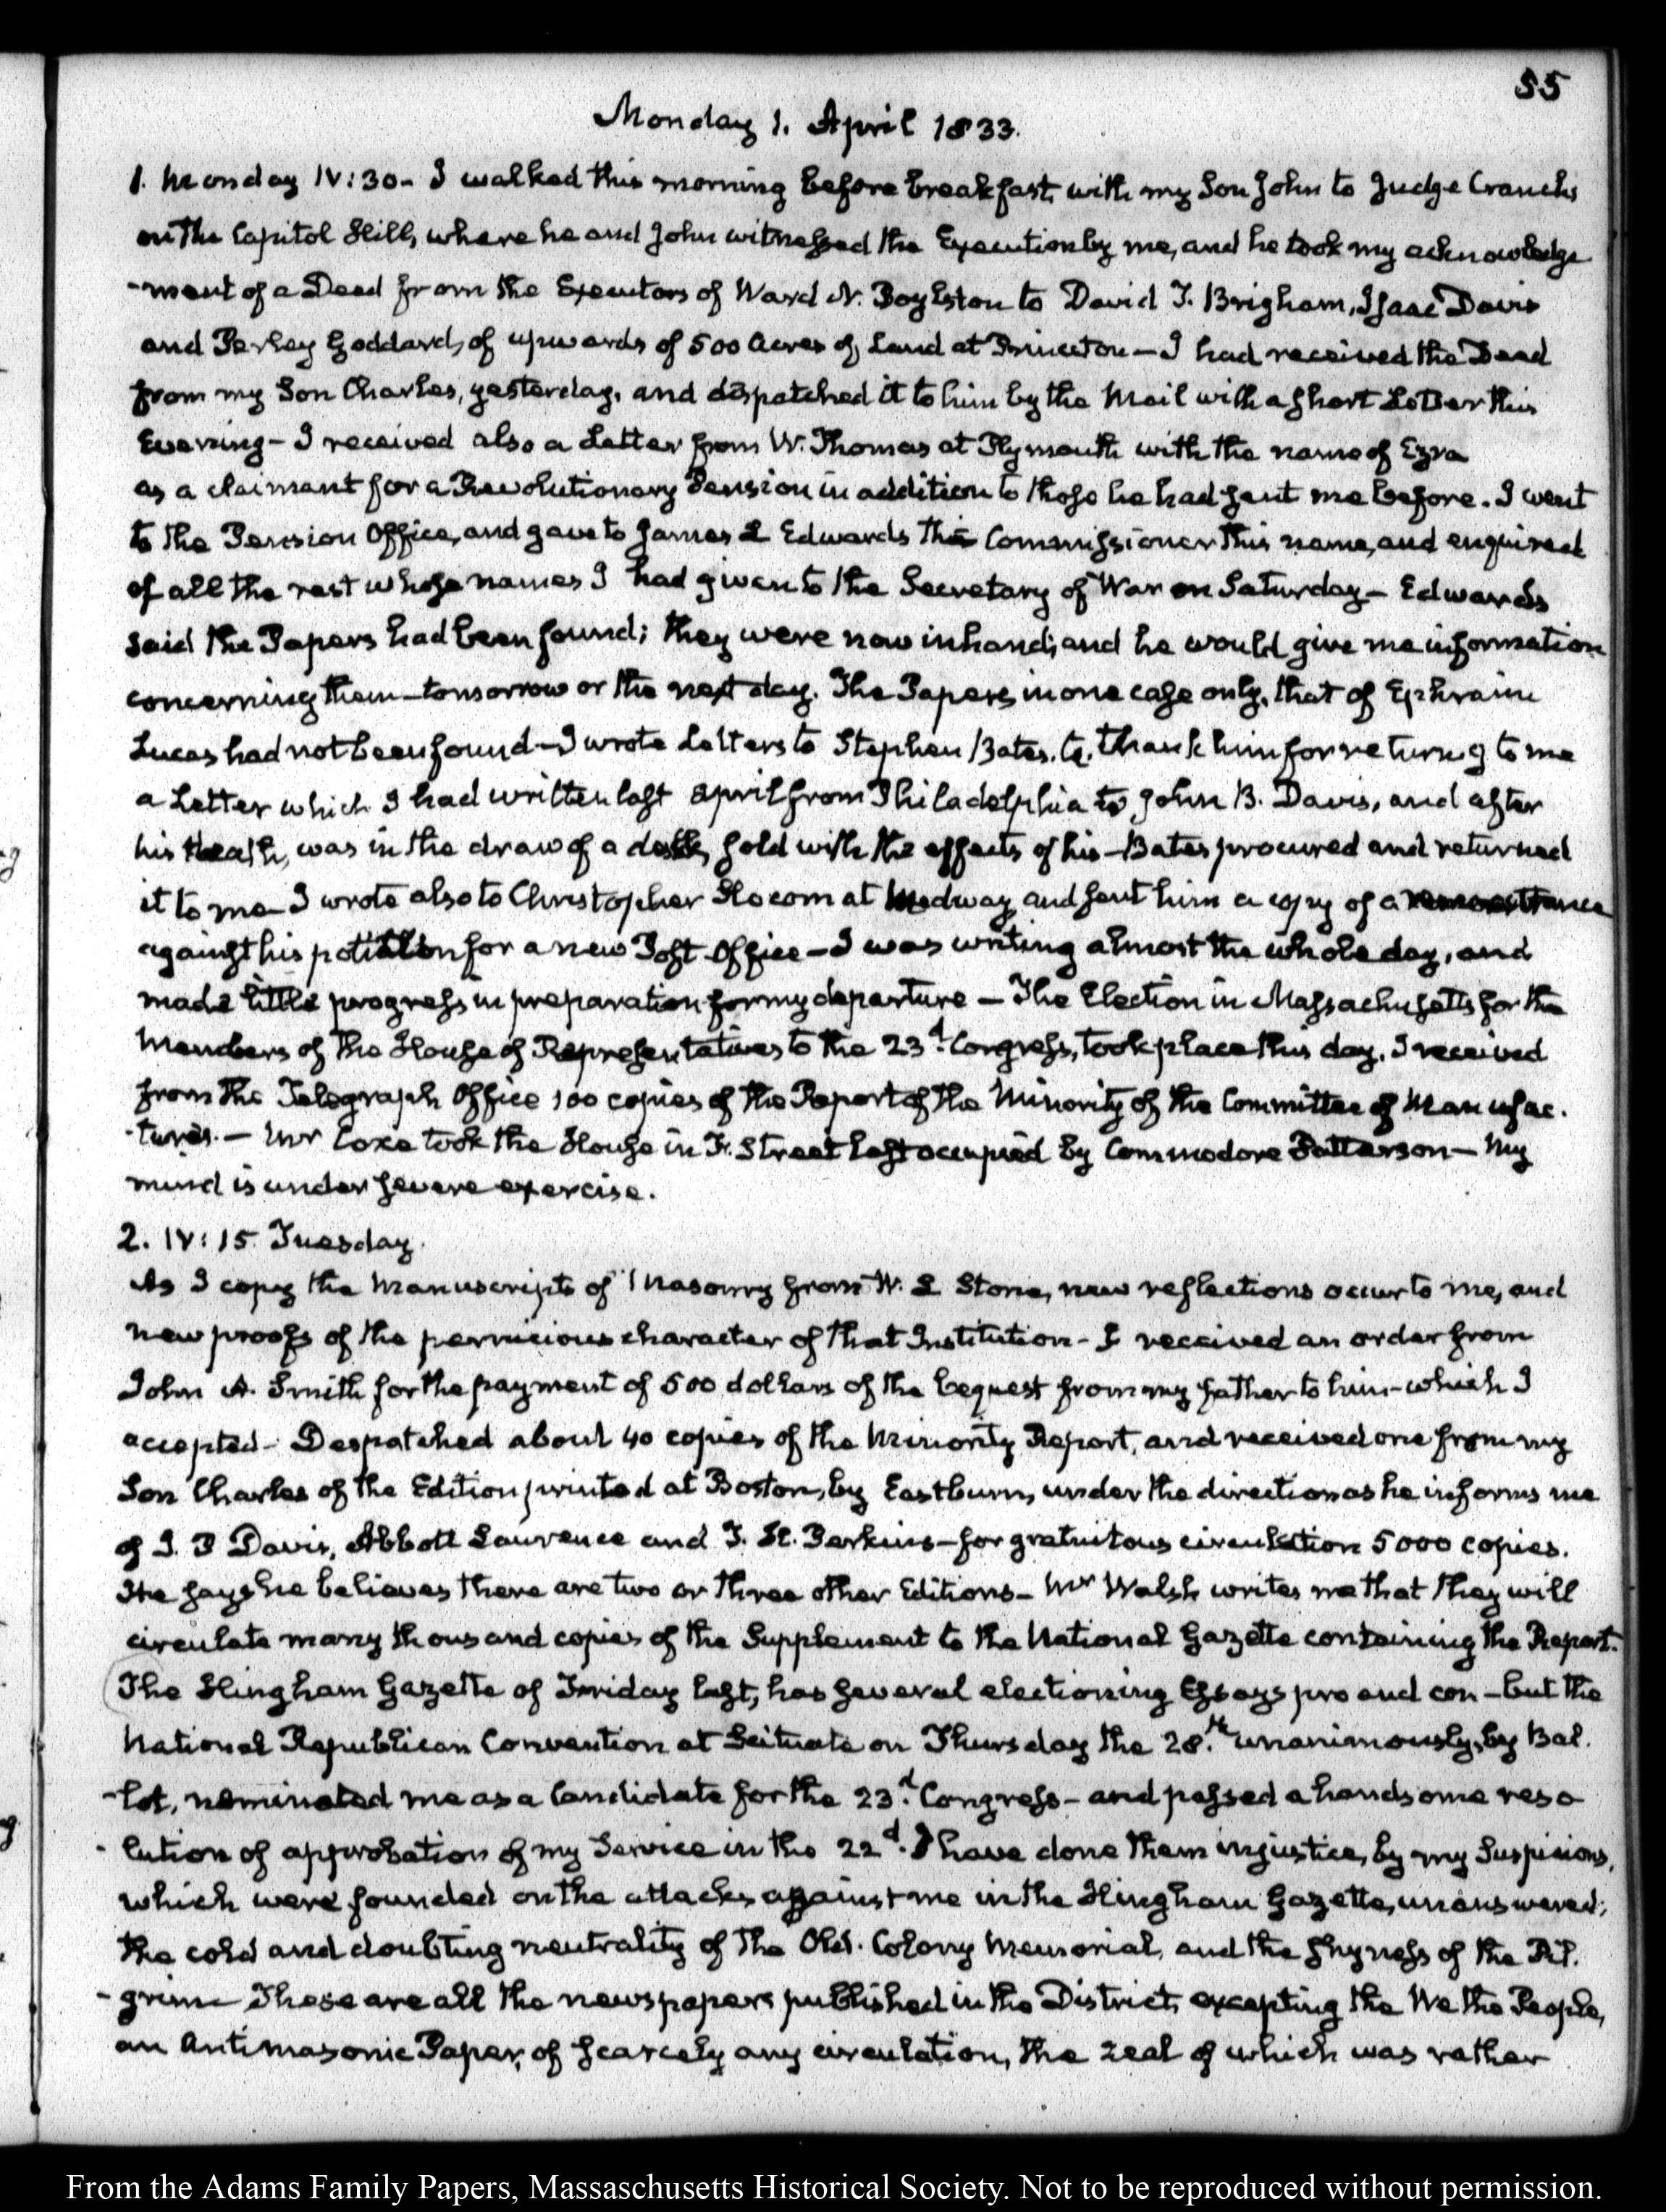 55
Monday 1. April 1833.
1. Monday IV:30- I walked this morning before breakfast with my Son John to Judge Cranch's
on the Capitol Hill, where he and John witnessed the Execution by me, and he took my acknowledge
-ment of a Deed from the Executors of Ward N. Boylston to David T. Brigham, Isaac Davis
and Perley Goddard, of upwards of 500 Acres of Land at Princeton — I had received the Deed
from my Son Charles, yesterday, and despatched it to him by the Mail with a short Letter this
Evening — I received also a Letter from W. Thomas at Plymouth with the name of Ezra
as a claimant for a Revolutionary Pension in addition to those he had sent me before. I went
to the Pension Office, and gave to James L Edwards the Commissioner this name, and enquired
of all the rest whose names I had given to the Secretary of War on Saturday — Edwards
said the Papers had been found; they were now in hand; and he would give me information
concerning them — tomorrow or the next day. The Papers in one case only, that of Ephraim
Lucas had not been found — I wrote Letters to Stephen Bates, to thank him for returng to me
a Letter which I had written last April from Philadelphia to John B. Davis, and after
his death, was in the draw of a desk, sold with the effects of his — Bates procured and returned
it to me — I wrote also to Christopher Slocom at Medway and sent him a copy of a remonstrance
against his petition for a new Post-Office — I was writing almost the whole day, and
made little progress in preparation for my departure — The Election in Massachusetts for the
Members of the House of Representatives to the 23d. Congress, took place this day. I received
from the Telegraph Office 100 copies of the Report of the Minority of the Committee of Manufac.
-tures. — Mr Coxe took the House in F. Street last occupied by Commodore Patterson — My
mind is under severe exercise.
2. IV:15. Tuesday.
As I copy the Manuscripts of Masonry from W. L Stone, new reflections occur to me, and
new proofs of the pernicious character of that Institution - I received an order from
John A. Smith for the payment of 500 dollars of the bequest from my father to him — which I
accepted — Despatched about 40 copies of the Minority Report, and received one from my
Son Charles of the Edition printed at Boston, by Eastburn, under the direction as he informs me
of J. P Davis, Abbott Lawrence and T. H. Perkins — for gratuitous circulation 5000 copies.
He says he believes there are two or three other Editions — Mr Walsh writes me that they will
circulate many thousand copies of the Supplement to the National Gazette containing the Report.
The Hingham Gazette of Friday last, has several electioning Essays pro and con — but the
National Republican Convention at Scituate on Thursday the 28.th unanimously, by Bal.
-lot, nominated me as a Candidate for the 23.d Congress — and passed a handsome reso
-lution of approbation of my Service in the 22d. I have done them injustice, by my Suspicions,
which were founded on the attacks against me in the Hingham Gazette, unanswered;
the cold and doubting neutrality of the Old. Colony Memorial, and the shyness of the Pil.
-grim — These are all the newspapers published in the District, excepting the We the People,
an Antimasonic Paper, of scarcely any circulation, the zeal of which was rather
From the Adams Family Papers, Massaschusetts Historical Society. Not to be reproduced without permission.